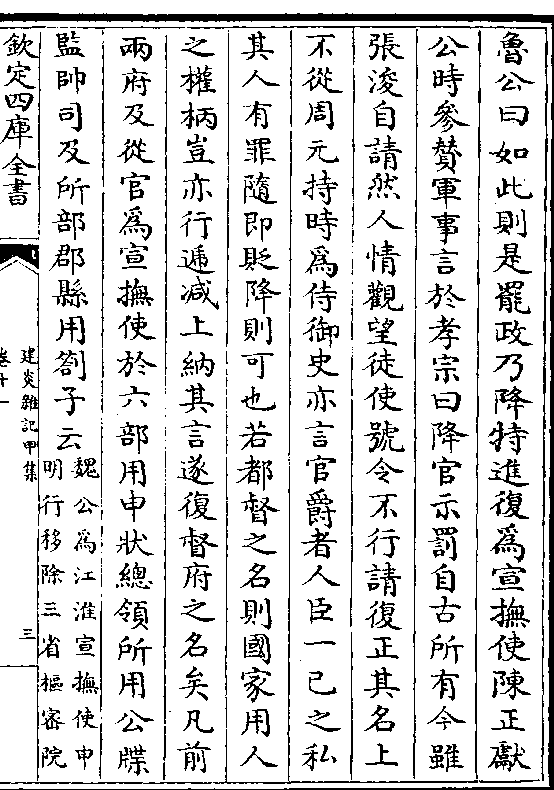 魯公曰如此則是罷政乃降特進復爲宣撫使陳正獻
公時參贊軍事言於孝宗曰降官示罰自古所有今雖
張浚自請然人情觀望徒使號令不行請復正其名上
不從周元持時爲侍御史亦言官爵者人臣一己之私
其人有罪隨即貶降則可也若都督之名則國家用人
之權柄豈亦行遞减上納其言遂復督府之名矣凡前
兩府及從官爲宣撫使於六部用申狀總領所用公牒
監帥司及所部郡縣用劄子云魏公爲江淮宣撫使申
明行移除三省樞密院
欽定四庫全書
建炎雜記甲集
卷十一
三